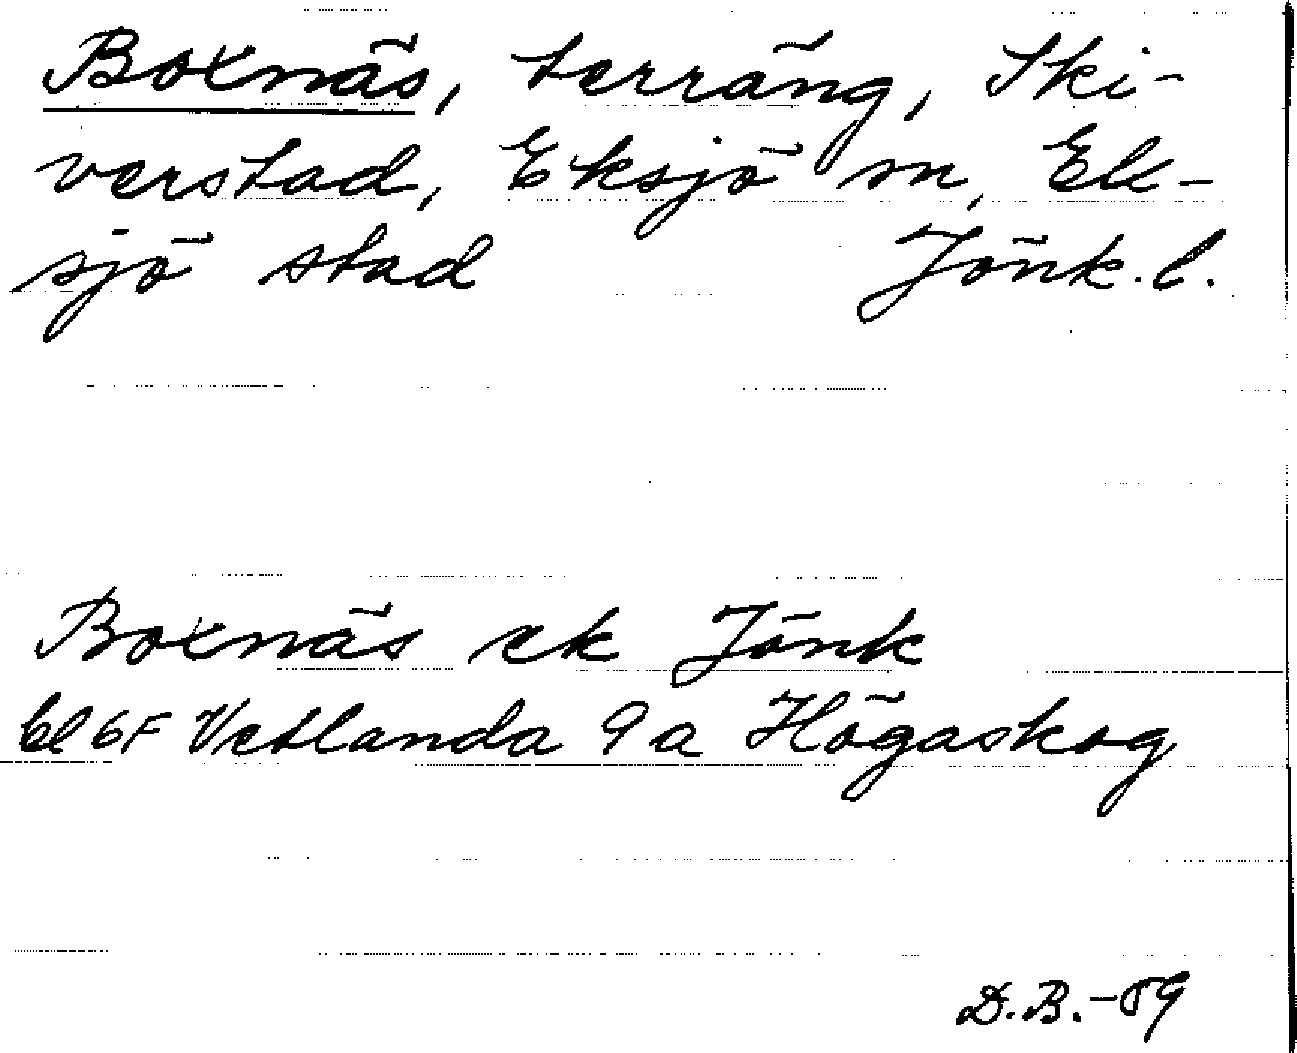 Boxnäs, terräng, Ski-
verstad, Eksjö m, Ek-
sjö stad Jönk.l.
Boxnäs ek Jönk
bl 6F Vetlanda 9a Högaskog
D.B.-59